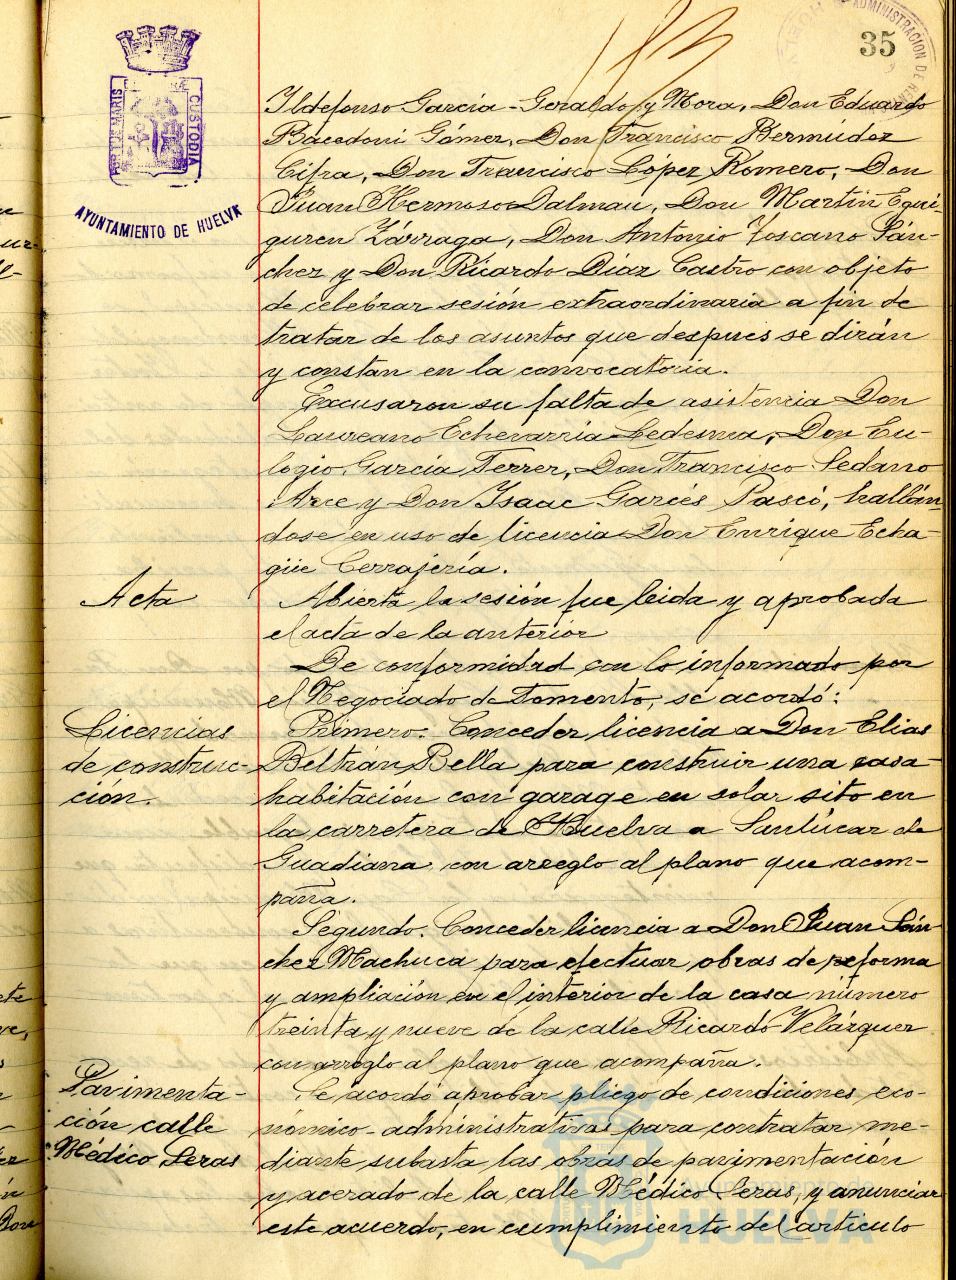 35
PORTUS MARIS
CUSTODIA
AYUNTAMIENTO DE HUELVA
Ildefonso García-Geraldo y Mora, Don Eduardo
Bacedoni Gómez, Don Francisco Bermúdez
Cifra, Don Francisco López Romero, Don
Juan Hermoso Dalmau, Don Martín Egui-
guren Zárraga, Don Antonio Toscano Sán-
chez y Don Ricardo Díaz Castro con objeto
de celebrar sesión extraordinaria a fin de
tratar de los asuntos que después se dirán
y constan en la convocatoria.
Excusaron su falta de asistencia Don
Laureano Echevarría Ledesma, Don Eu-
logio García Ferrer, Don Francisco Sedano
Arce y Don Isaac Garcés Pascó, hallán-
dose en uso de licencia Don Enrique Echa-
güe Cerrajería.
Acta
Abierta la sesión fue leida y aprobada
el acta de la anterior
De conformidad con lo informado por
el Negociado de Fomento, se acordó:
Licencias
de construc-
ción.
Primero. Conceder licencia a Don Elias
Beltrán Bella para construir una casa
habitación con garage en solar sito en
la carretera de Huelva a Sanlúcar de
Guadiana, con arreglo al plano que acom-
paña.
Segundo. Conceder licencia a Don Juan Sán-
chez Machuca para efectuar obras de reforma
y ampliación en el interior de la casa número
treinta y nueve de la calle Ricardo Velázquez
con arreglo al plano que acompaña.
Pavimenta-
ción calle
Médico Seras
Se acordó aprobar pliego de condiciones eco-
nómico-administrativas para contratar me-
diante subasta las obras de pavimentación
y acerado de la calle Médico Seras, y anunciar
este acuerdo, en cumplimiento del artículo
Ayuntamiento de
HUELVA